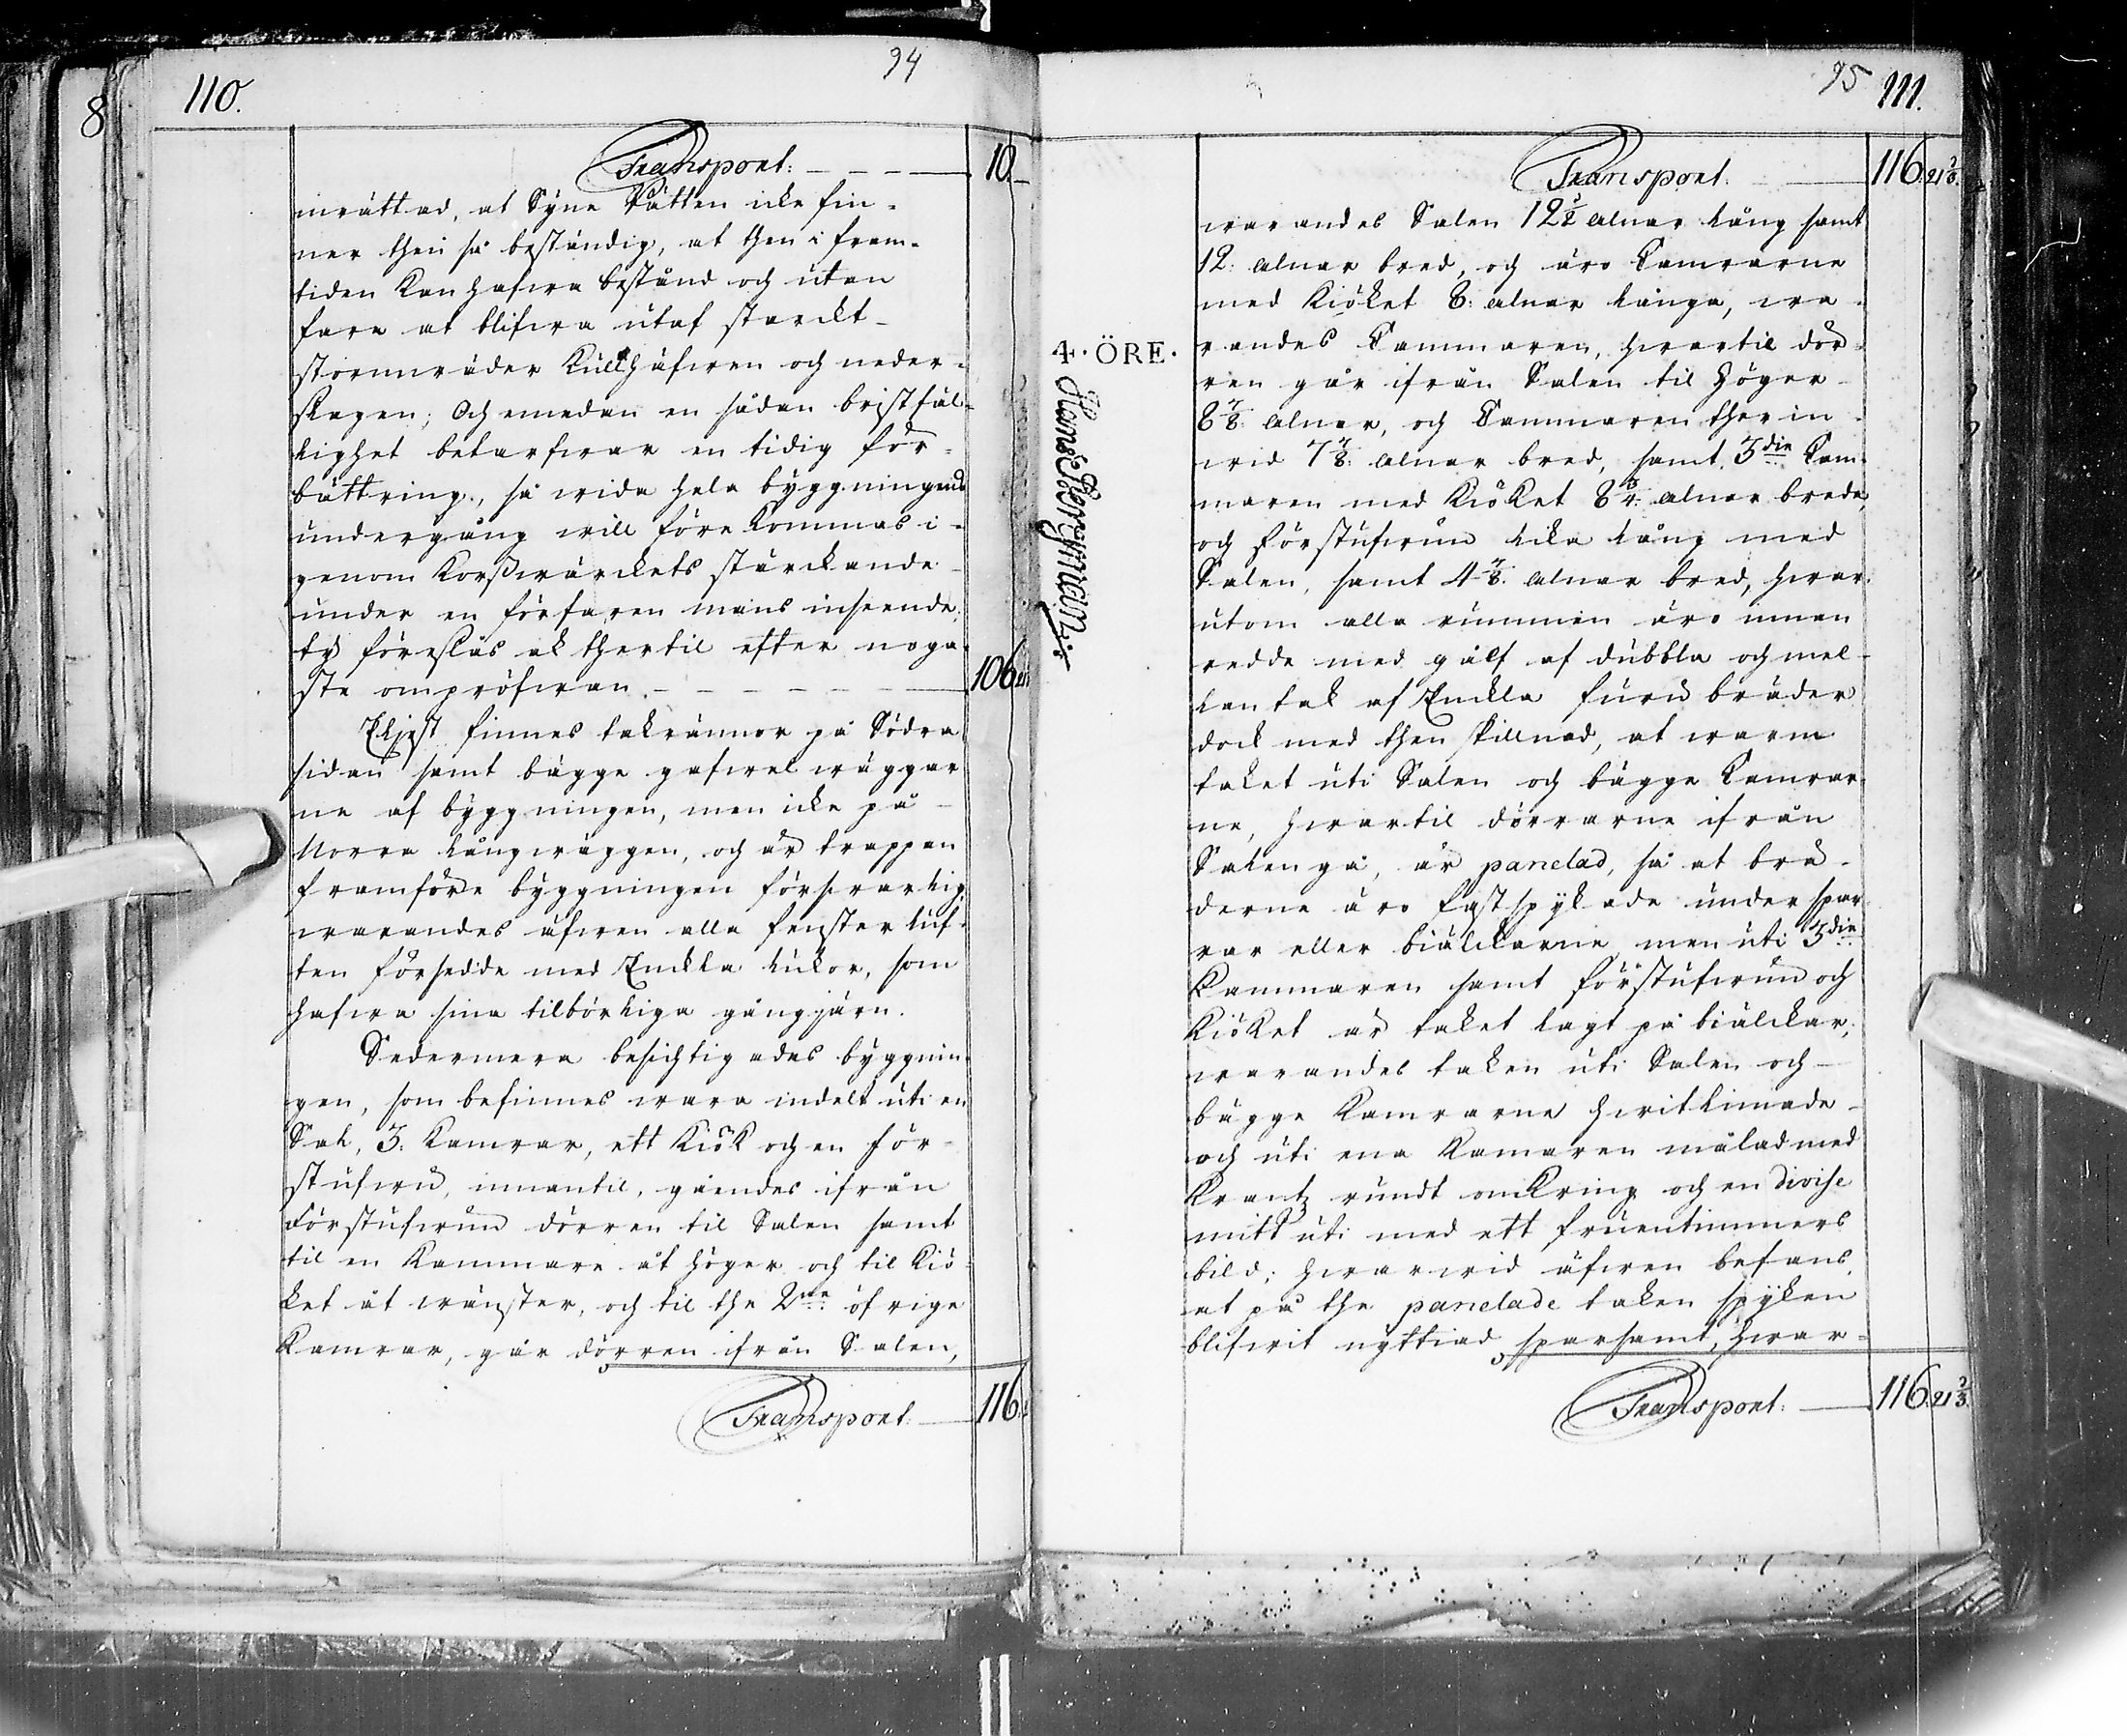 94
110.
8
Transport: 10.
inrättad, at Syne Rätten icke fin-
ner then så beständig, at then i fram-
tiden kan hafwa bestånd och utan
fara at blifwa utaf starckt
stormwäder kullhäfwen och neder-
slagen; Och emedan en sådan bristfäl-
lighet betarfwar en tidig för-
bättring, så wida hela byggningens
undergång will förekommas i-
genom Korßwärckets stärckande
under en förfaren mans inseende;
ty föreslås ak thertil efter noga-
ste ompröfwan. 106.
Eljest finnes takrännor på Södra
sidan samt bägge gafwel wäggar
ne af byggningen, men icke på
Norra långwäggen, och är trappan
framföre byggningen förswarlig,
warandes äfwen alla fenster luf-
ten försedde med Enckla lukor, som
hafwa sina tilbörliga gångjärn.
Sedermera besichtigades byggnin-
gen, som befinnes wara indelt uti en
Sal, 3: Kamrar, ett Kiök och en för-
stufwu, innantil, gåendes ifrån
Förstufwun dörren til Salen samt
til en Kammare åt höger och til Kiö-
ket åt wänster, och til the 2ne öfrige
Kamrar, går dörren ifrån Salen,
Transport: 116.
95 111.
Transport. 116. 21 1/3.
warandes Salen 12 1/2 alnar lång samt
12: alnar bred, och äro Camrarne
med Kiöket 8: alnar långa, wa-
4. ÖRE.
randes Cammaren, hwartil dör-
ren går ifrån Salen til höger
8 7/8: alnar, och Cammaren ther in-
wid 7 7/8: alnar bred, samt 3die Cam-
maren med Kiöket 8 3/4: alnar breda,
och förstufwun lika lång med
Salen, samt 4 7/8: alnar bred, hwar-
utom alla rummen äro innan
redde med gålf af dubbla och mel-
lantak af Enckla furu bräder
dock med then skillnad, at warm
taket uti Salen och bägge Camrar-
ne, hwartil dörrarne ifrån
Salen gå, är panelad, så at brä-
derne äro fastspykade under spar
rar eller biälckarne, men uti 3die
Kammaren samt förstufwun och
Kiöket är taket lagt på biälckar;
warandes taken uti Salen och
bägge Kamrarne hwitlimade
och uti ena Kamaren målad med
Krantz rundt omkring och en divise
mitt uti med ett fruentimmers
bild; hwarwid äfwen befans,
at på the panelade taken spyken
blifwit nyttiad sparsamt, hwar-
Transport: 116. 21 1/3.